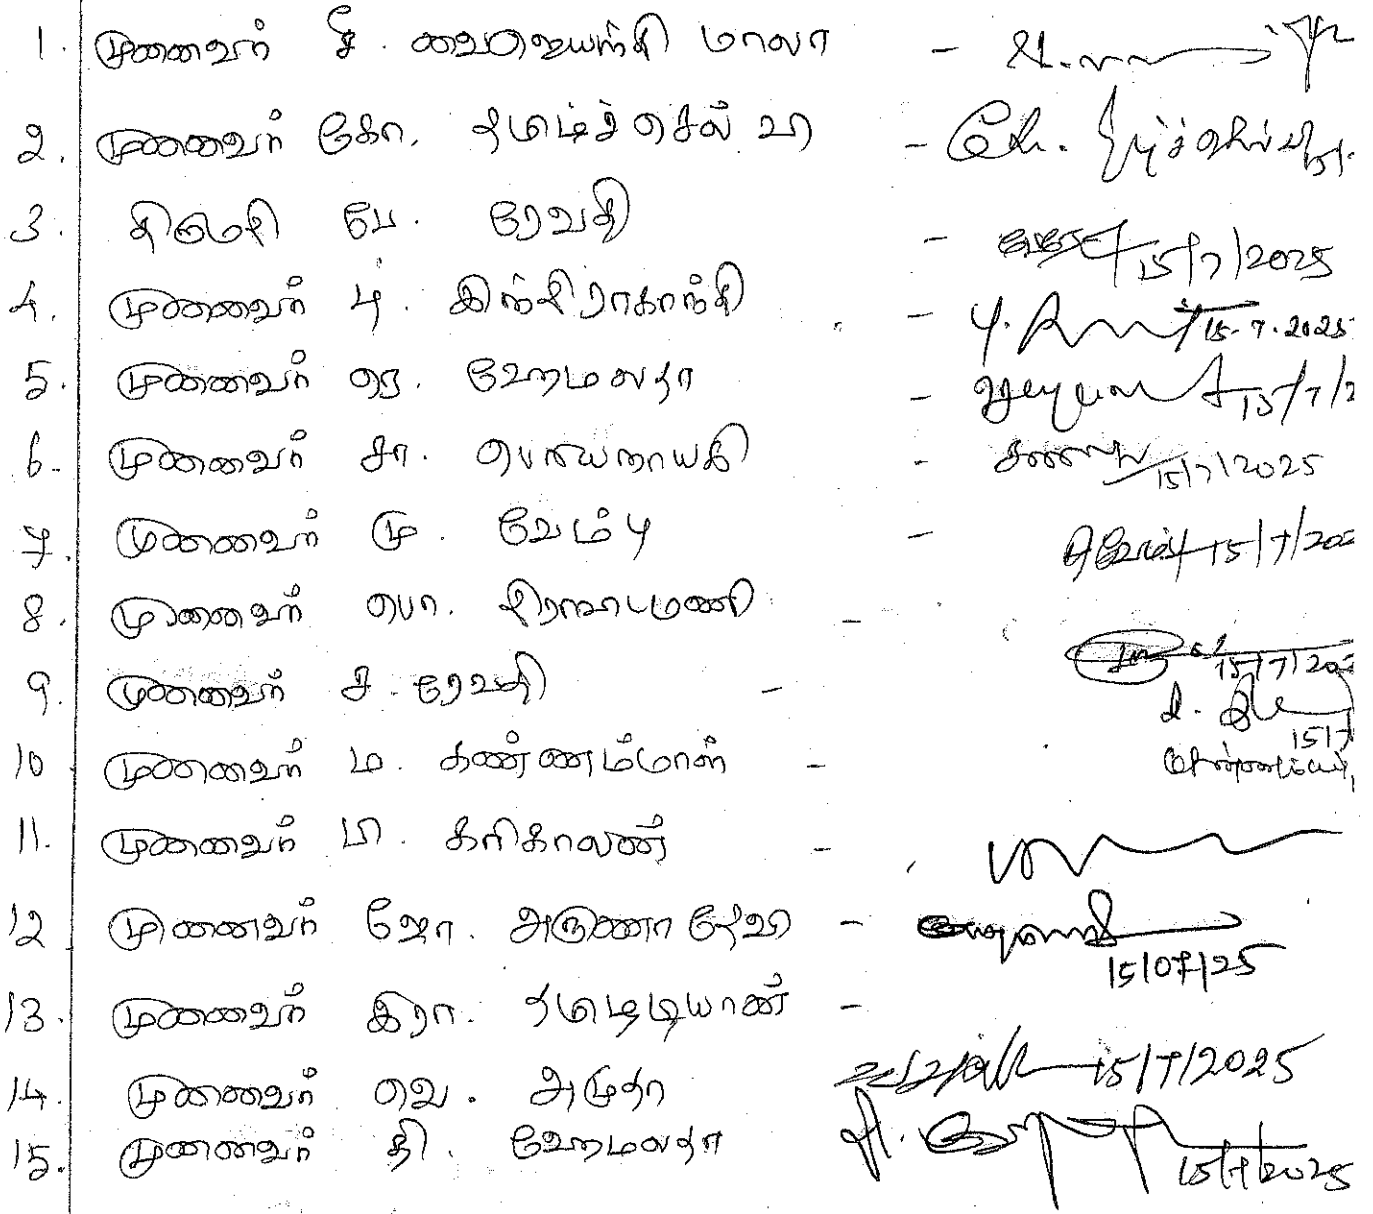 1. முனைவர் சீ. வைஜெயந்தி மாலா -
2. முனைவர் கோ. தமிழ்ச்செல்வி -
3. திருமதி பே. ரேவதி - 15/7/2025
4. முனைவர் பு. இந்திராகாந்தி - 15.7.2025
5. முனைவர் ஹேமலதா - 15/7/2
6. முனைவர் சா. பெரியநாயகி - 15/7/2025
7. முனைவர் மு. வேம்பு - 15/7/202
8. முனைவர் பொ. திராவிடமணி - 15/7/202
9. முனைவர் ச. ரேவதி - 15/7
10 முனைவர் ம. கண்ணம்மாள் -
11. முனைவர் பி. கரிகாலன் -
12 முனைவர் ஜோ. அருணா தேவி - 15/07/25
13. முனைவர் இரா. தமிழடியான் -
14. முனைவர் வெ. அமுதா 15/7/2025
15. முனைவர் தி. ஹேமலதா 15/7/2025